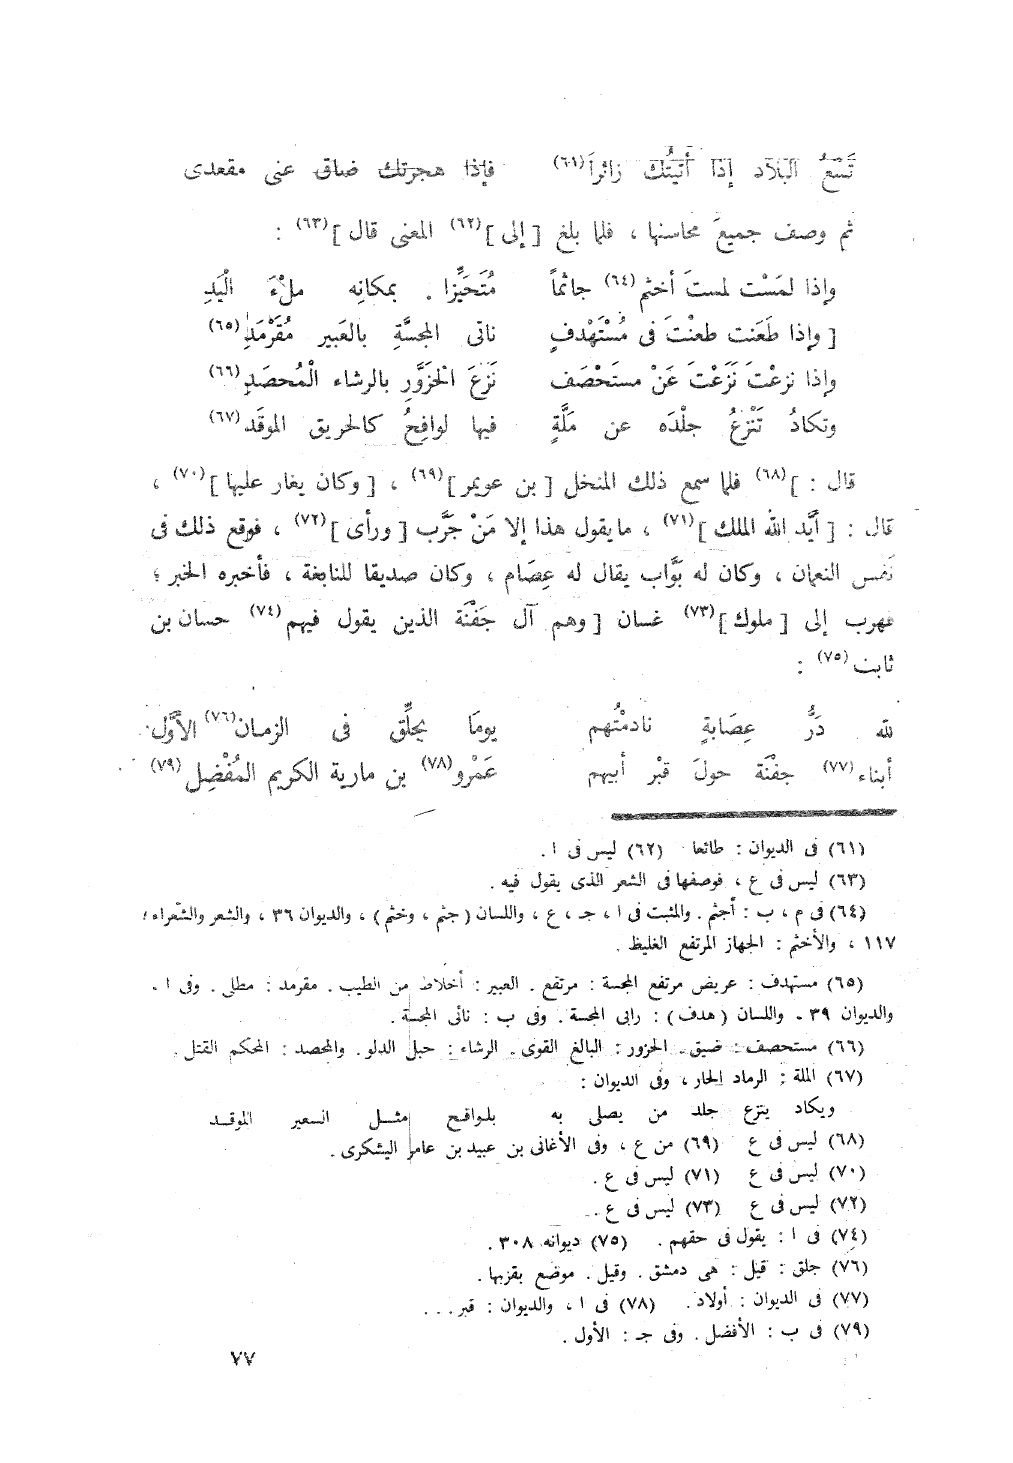 تَسَعُ البَلاَد إذَا أَتَيْتُك زائراً (٦١) فإذا هجرتك ضاق عنى مقعدى
ثم وصف جميعَ محاسنها ، فلما بلغ [ إلى ] (٦٢) المعنى قال ] (٦٣) :
وإذا لمَسْت لمستَ أخثم (٦٤) جاثماً مُتَحَيِّزا . بمكانِه ملْءَ الْيَدِ
[ وإذا طَعَنت طعنْتَ فى مُسْتَهْدفٍ ناتى المجسَّةِ بالعَبير مُقَرْمَدِ (٦٥)
وإذا نزعْتَ نَزَعْتَ عَنْ مستَحْصَف نَزعَ الْحَزَوَّرِ بالرشاء الْمُحصَدِ (٦٦)
وتكادُ تَنْزعُ جلْدَه عن مَلَّةٍ فيها لوافِحُ كالحريق الموقَد (٦٧)
قال : ] (٦٨) فلما سمع ذلك المنخل [ بن عويمر ] (٦٩) ، [ وكان يغار عليها ] (٧٠) ،
قال : [ أيَّد الله الملك ] (٧١) ، ما يقول هذا إلا مَنْ جَرَّب [ ورأى ] (٧٢) ، فوقع ذلك فى
نَفس النعمان ، وكان له بَوَّاب يقال له عِصَام ، وكان صديقا للنابغة ، فأخبره الخبر ؛
فهرب إلى [ ملوك ] (٧٣) غسان [ وهم آل جَفْنَة الذين يقول فيهم (٧٤) حسان بن
ثابت (٧٥) :
لله دَرُّ عِصَابةٍ نادمْتُهم يومَا بِجِلِّق فى الزمان (٧٦) الأَوَّل
أبناء (٧٧) جفْنَة حولَ قبْر أبيهم عَمْرو (٧٨) بن مارية الكريم المُفْضِل (٧٩)
(٦١) فى الديوان : طائعا (٦٢) ليس فى ا .
(٦٣) ليس فى ع ، فوصفها فى الشعر الذى يقول فيه .
(٦٤) فى م ، ب : أجثم . والمثبت فى ا ، جـ ، ع ، واللسان ( جثم ، وخثم ) ، والديوان ٣٦ ، والشعر والشعراء :
١١٧ ، والأخثم : الجهاز المرتفع الغليظ .
(٦٥) مستهدف : عريض مرتفع المجسة : مرتفع . العبير : أخلاط من الطيب . مقرمد : مطلى . وفى ا .
والديوان ٣٩ - واللسان ( هدف ) : رابى المجسة . وفى ب : نائى المجسة .
(٦٦) مستحصف : ضيق . الحزور : البالغ القوى . الرشاء : حبل الدلو . والمحصد : المحكم الفتل .
(٦٧) الملة : الرماد الحار ، وفى الديوان :
ويكاد ينزع جلد من يصلى به بلوافح مثل السعير الموقد
(٦٨) ليس فى ع (٦٩) من ع ، وفى الأغانى بن عبيد بن عامر اليشكرى .
(٧٠) ليس فى ع (٧١) ليس فى ع .
(٧٢) ليس فى ع (٧٣) ليس فى ع .
(٧٤) فى ا : يقول فى حقهم . (٧٥) ديوانه ٣٠٨ .
(٧٦) جلق : قيل : هى دمشق . وقيل . موضع بقربها .
(٧٧) فى الديوان : أولاد . (٧٨) فى ا ، والديوان : قبر . . .
(٧٩) فى ب : الأفضل . وفى جـ : الأول .
٧٧